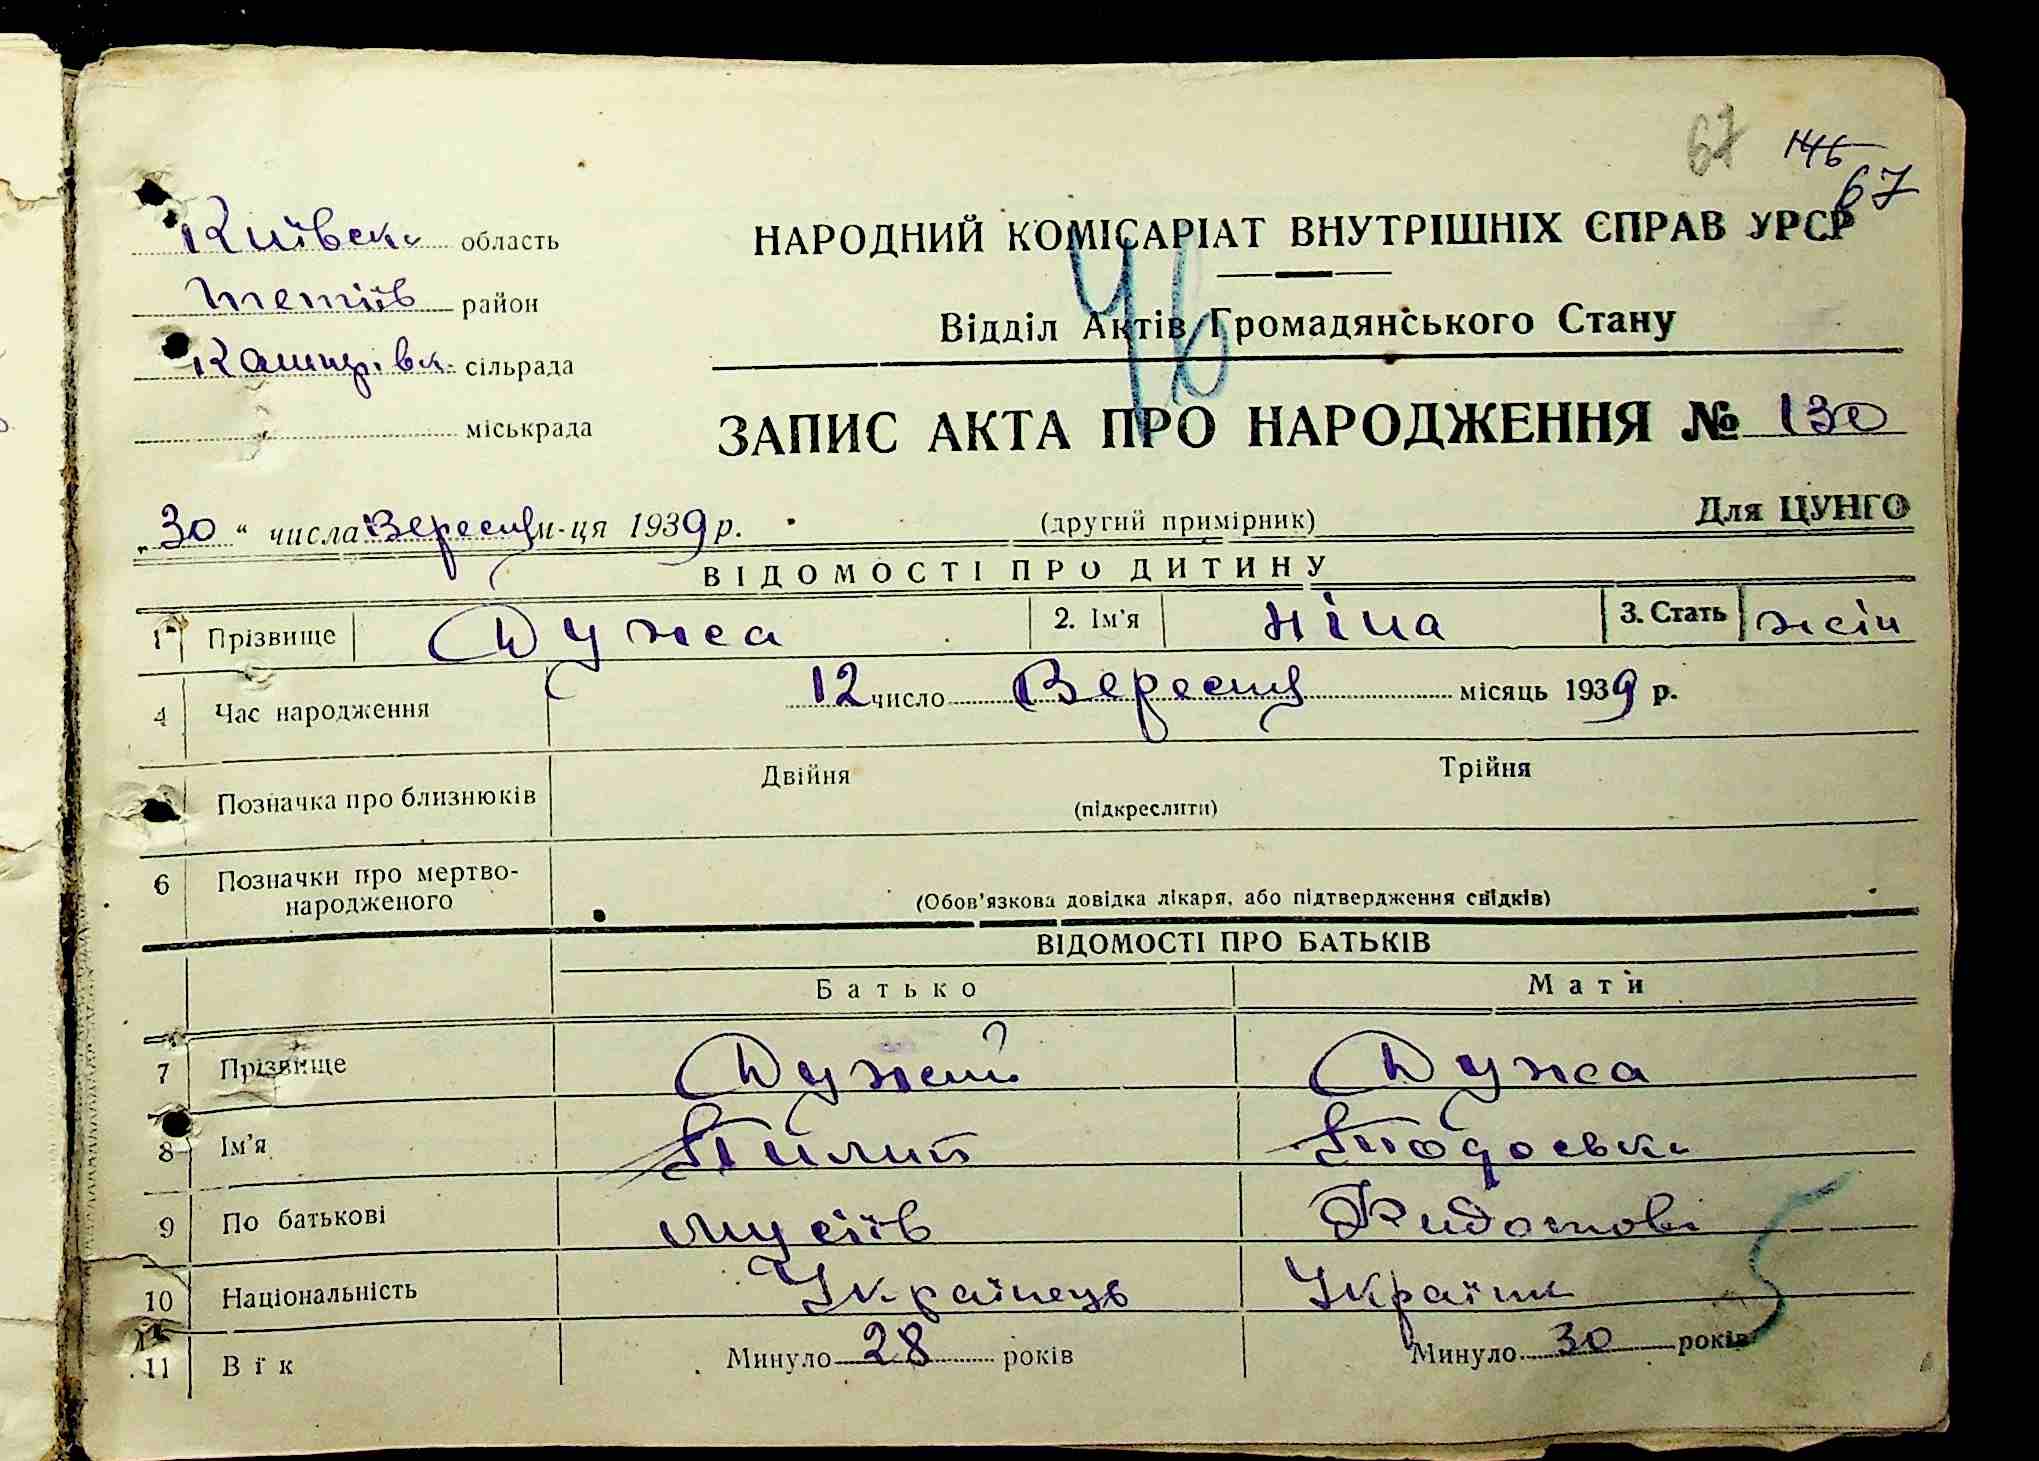 67 146
67
Київськ область
Тетіїв район
Кашперівк. сільрада
міськрада
НАРОДНИЙ КОМІСАРІАТ ВНУТРІШНІХ ЄПРАВ УРСР
46
Відділ Актів Громадянського Стану
ЗАПИС АКТА ПРО НАРОДЖЕННЯ № 130
„30“ числа Вересня м-ця 1939 р. (другий примірник) Для ЦУНГО
ВІДОМОСТІ ПРО ДИТИНУ
1 Прізвище Дужа 2. Ім'я Ніна 3. Стать жін
4 Час народження 12 число Вересня місяць 1939 р.
Позначка про близнюків Двійня Трійня
(підкреслити)
6 Позначки про мертво-
народженого (Обов'язкова довідка лікаря, або підтвердження свідків)
ВІДОМОСТІ ПРО БАТЬКІВ
Батько Мати
7 Прізвище Дужий Дужа
8 Ім'я Пилип Тодоська
9 По батькові Мусіїв Хидотові
10 Національність Українець Україн
11 Вік Минуло 28 років Минуло 30 років
5